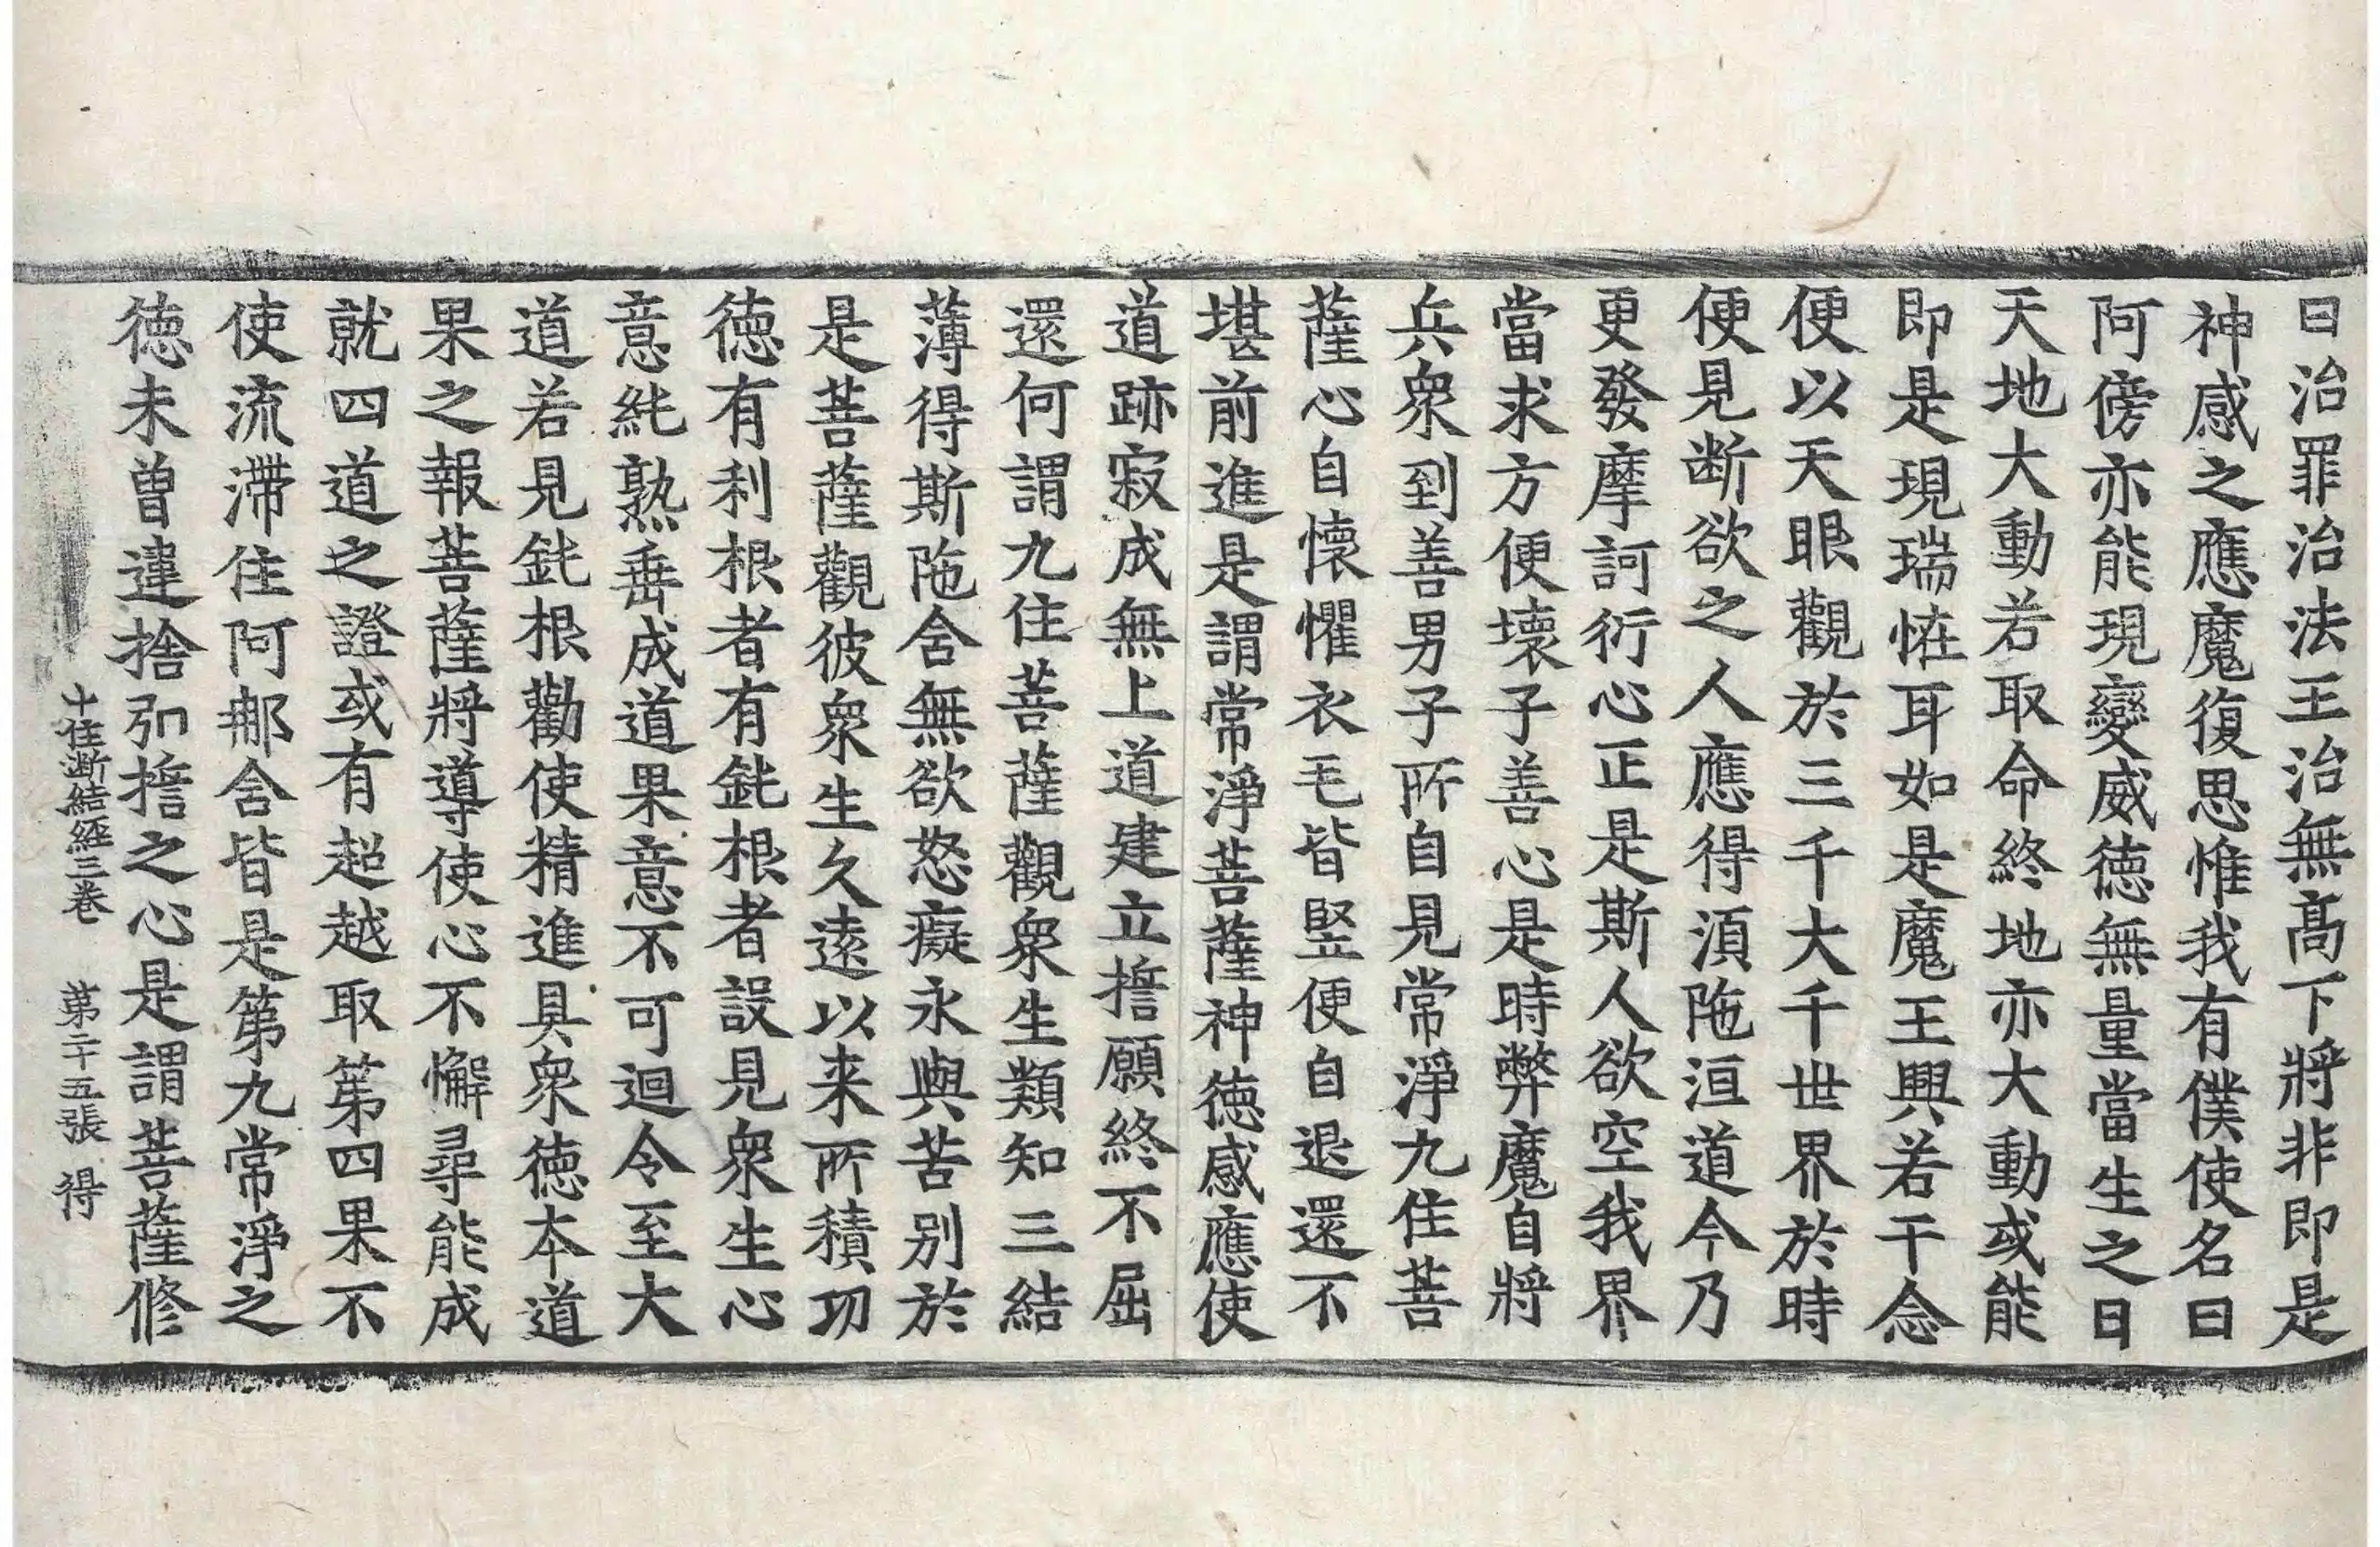 曰治罪治法王治無髙下將非即是
神感之應魔復思惟我有僕使名曰
阿傍亦能現變威德無量當生之日
天地大動若取命終地亦大動或能
即是現瑞恠耳如是魔王興若干念
便以天眼觀於三千大千世界於時
便見断欲之人應得湏陁洹道今乃
更發摩訶衍心正是斯人欲空我界
當求方便壞子善心是時弊魔自將
兵衆到善男子所自見常淨九住菩
薩心自懷懼衣毛皆竪便自退還不
堪前進是謂常淨菩薩神德感應使
道跡寂成無上道建立擔願終不屈
還何謂九住菩薩觀衆生類知三結
薄得斯陁含無欲怒癡永與苦别於
是菩薩觀彼衆生久遠以来所積功
德有利根者有鈍根者設見衆生心
意純熟垂成道果意不可迴令至大
道若見鈍根勸使精進具衆德本道
果之報菩薩將導使心不懈尋能成
就四道之證或有超越取第四果不
使流滯住阿那含皆是第九常淨之
德未曽違捨弘擔之心是謂菩薩修
十住断結經三卷 第二十五張 得